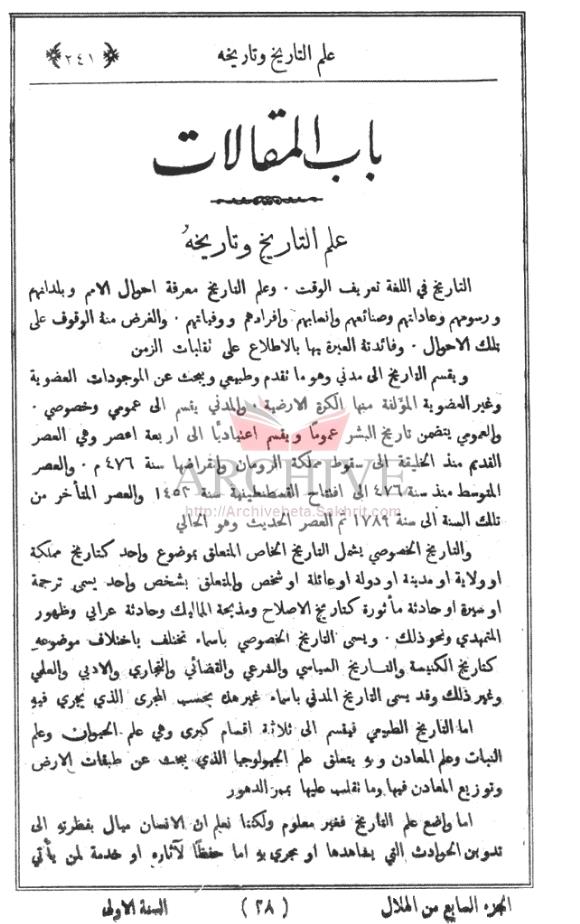 علم التاريخ وتاريخه ﴿ ٢٤١ ﴾
باب المقالات
علم التاريخ وتاريخهُ
التاريخ في اللغة تعريف الوقت · وعلم التاريخ معرفة احوال الامم وبلدانهم
ورسومهم وعاداتهم وصنائعهم وانسابهم وافرادهم ووفياتهم · والغرض منهُ الوقوف على
تلك الاحوال · وفائدتهُ العبرة بها بالاطلاع على تقلبات الزمن
ويقسم التاريخ الى مدني وهو ما تقدم وطبيعي ويبحث عن الموجودات العضوية
وغير العضوية المؤلفة منها الكرة الارضية · والمدني يقسم الى عمومي وخصوصي ·
والعمومي يتضمن تاريخ البشر عموماً ويقسم اعتيادياً الى اربعة اعصر وهي العصر
القديم منذ الخليقة الى سقوط مملكة الرومان وانقراضها سنة ٤٧٦ م · والعصر
المتوسط منذ سنة ٤٧٦ الى افتتاح القسطنطينية سنة ١٤٥٢ والعصر المتأخر من
تلك السنة الى سنة ١٧٨٩ ثم العصر الحديث وهو الحالي
ARCHIVE
http://Archivebeta.Sakhrit.com
والتاريخ الخصوصي يشمل التاريخ الخاص المتعلق بموضوع واحد كتاريخ مملكة
او ولاية او مدينة او دولة او عائلة او شخص والمتعلق بشخص واحد يسمى ترجمة
او سيرة او حادثة مأثورة كتاريخ الاصلاح ومذبحة المماليك وحادثة عرابي وظهور
المتمهدي ونحو ذلك · ويسمى التاريخ الخصوصي باسماء تختلف باختلاف موضوعهِ
كتاريخ الكنيسة والتاريخ السياسي والشرعي والقضائي والتجاري والادبي والعلمي
وغير ذلك وقد يسمى التاريخ المدني باسماء غير هذه بحسب المجرى الذي يجري فيهِ
اما التاريخ الطبيعي فيقسم الى ثلاثة اقسام كبرى وهي علم الحيوان وعلم
النبات وعلم المعادن وبهِ يتعلق علم الجيولوجيا الذي يبحث عن طبقات الارض
وتوزيع المعادن فيها وما تقلب عليها بمر الدهور
اما واضع علم التاريخ فغير معلوم ولكننا نعلم ان الانسان ميال بفطرتهِ الى
تدوين الحوادث التي يشاهدها او تجري بهِ اما حفظاً لآثارهِ او خدمة لمن يأتي
الجزء السابع من الهلال ( ٢٨ ) السنة الاولى